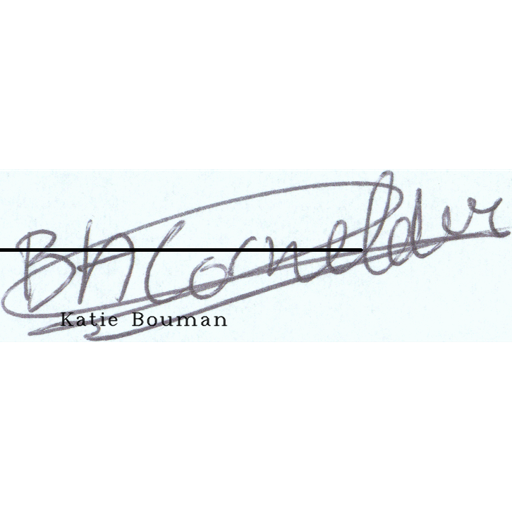 BHCornelder
Katie Bouman